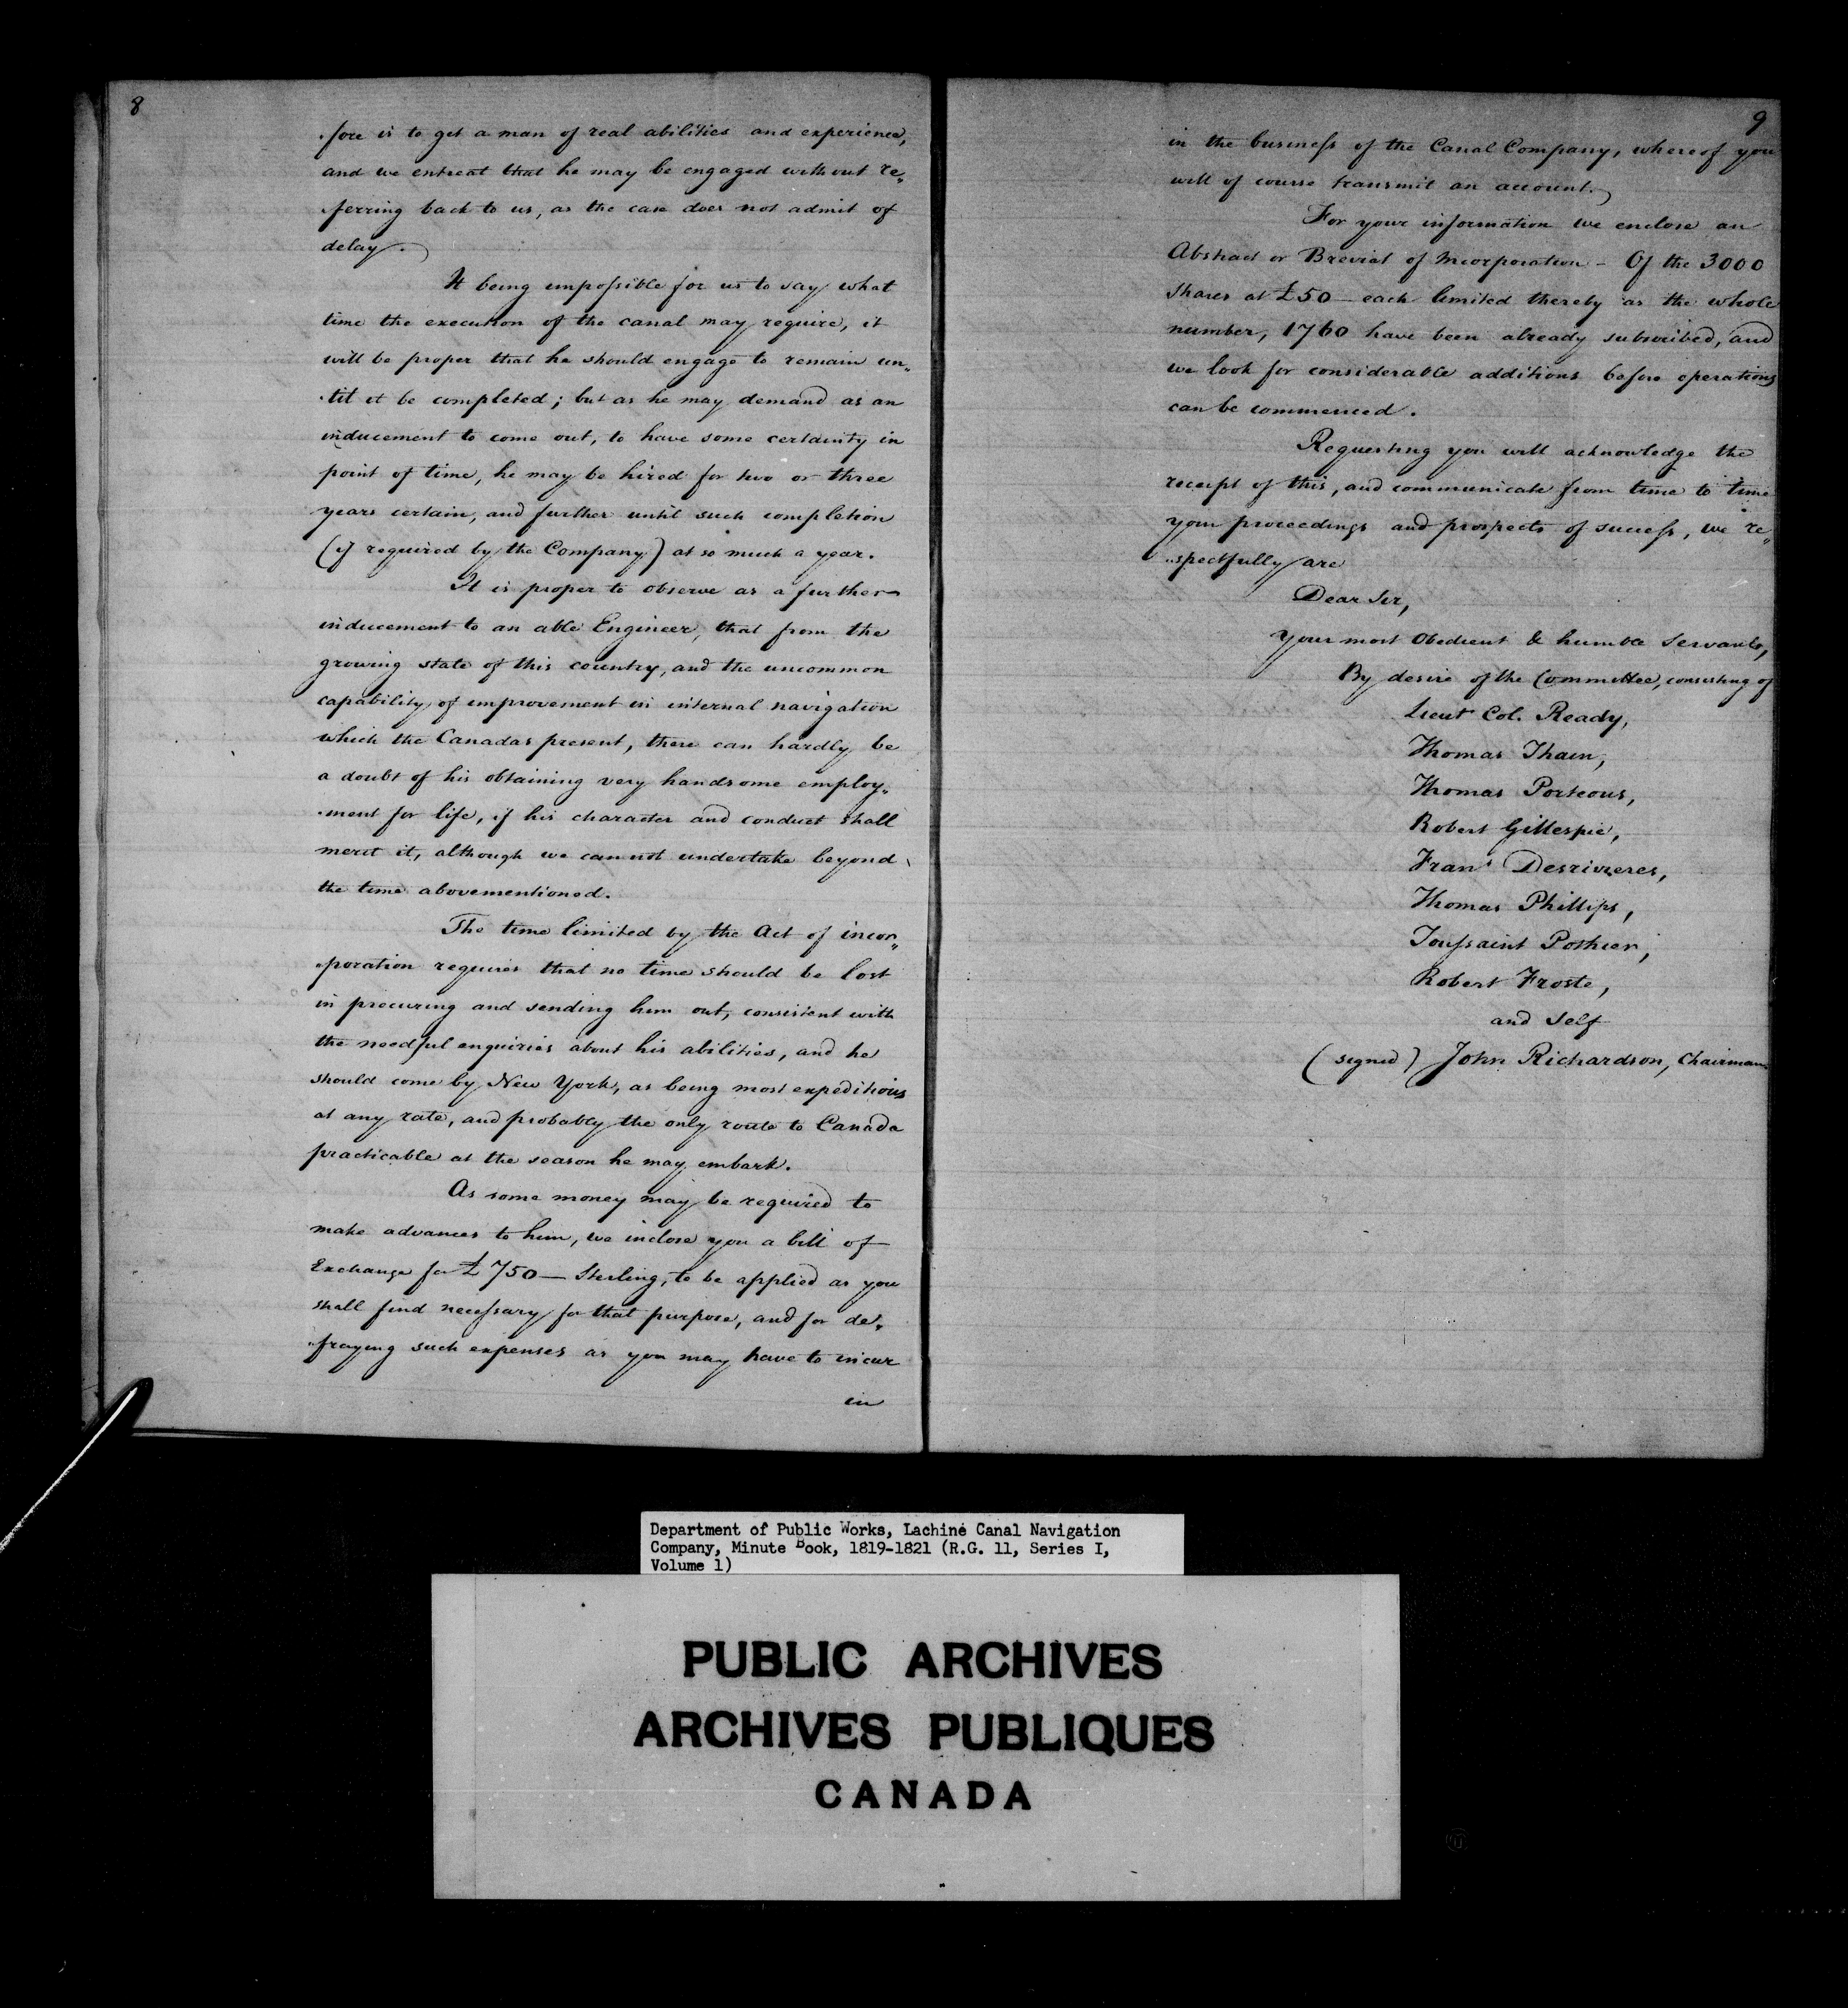 8
„fore is to get a man of real abilities and experience,
and we entreat that he may be engaged without re„
„ferring back to us, as the case does not admit of
delay.
It being impossible for us to say what
time the execution of the canal may require, it
will be proper that he should engage to remain un„
„til it be completed; but as he may demand as an
inducement to come out, to have some certainty in
point of time, he may be hired for two or three
years certain, and further until such completion
(if required by the Company) at so much a year.
It is proper to observe as a further
inducement to an able Engineer, that from the
growing state of this country, and the uncommon
capability of improvement in internal navigation
which the Canadas present, there can hardly be
a doubt of his obtaining very handsome employ„
„ment for life, if his character and conduct shall
merit it, although we cannot undertake beyond
the time abovementioned.
The time limited by the Act of incor„
„poration requires that no time should be lost
in procuring and sending him out, consistent with
the needful enquiries about his abilities, and he
should come by New York, as being most expeditious
at any rate, and probably the only route to Canada
practicable at the season he may embark.
As some money may be required to
make advances to him, we inclose you a bill of
Exchange for £750 — Sterling, to be applied as you
shall find necessary for that purpose, and for de„
„fraying such expenses as you may have to incur
in
9
in the business of the Canal Company, whereof you
will of course transmit an account.
For your information we enclose an
Abstract or Breviat of Incorporation – Of the 3000
Shares at £50 — each limited thereby as the whole
number, 1760 have been already subscribed, and
we look for considerable additions before operations
can be commenced.
Requesting you will acknowledge the
receipt of this, and communicate from time to time
your proceedings and prospects of success, we re„
„spectfully are
Dear Sir,
Your most Obedient & humble Servants,
By desire of the Committee, consisting of
Lieut Col. Ready,
Thomas Thain,
Thomas Porteous,
Robert Gillespie,
Frans Desrivieres,
Thomas Phillips,
Toussaint Pothier,
Robert Froste,
and Self
(signed) John Richardson, Chairman
Department of Public Works, Lachine Canal Navigation
Company, Minute Book, 1819-1821 (R.G. 11, Series I,
Volume 1)
PUBLIC ARCHIVES
ARCHIVES PUBLIQUES
CANADA